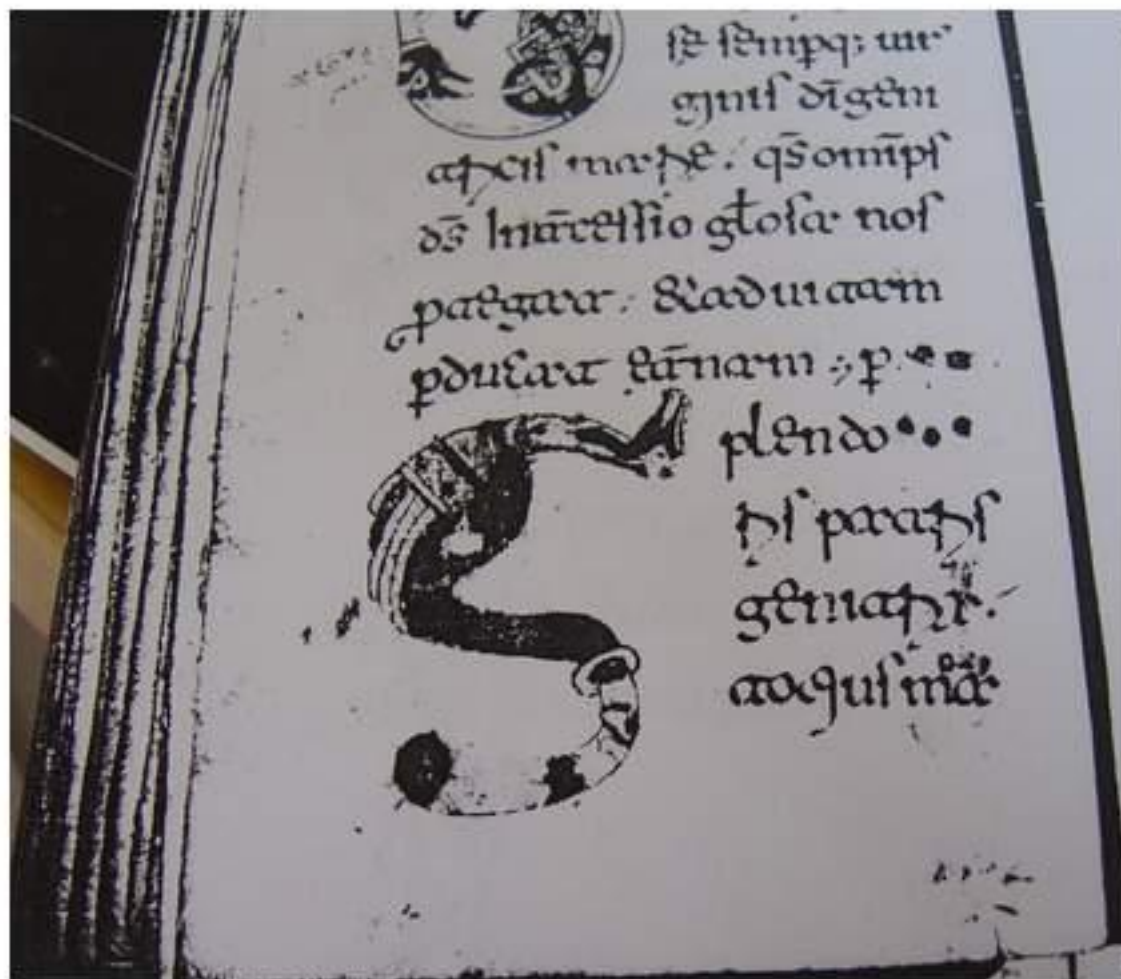 se semp̱q; uir
ginis dī geni
tricis marie. qs̄ omīps
ds̄ Int̄cessio gl̄osa nos
ꝓtegat. & ad uitam
ꝑducat et̄nam ꝑ
Splendo
ris patris
genitrix.